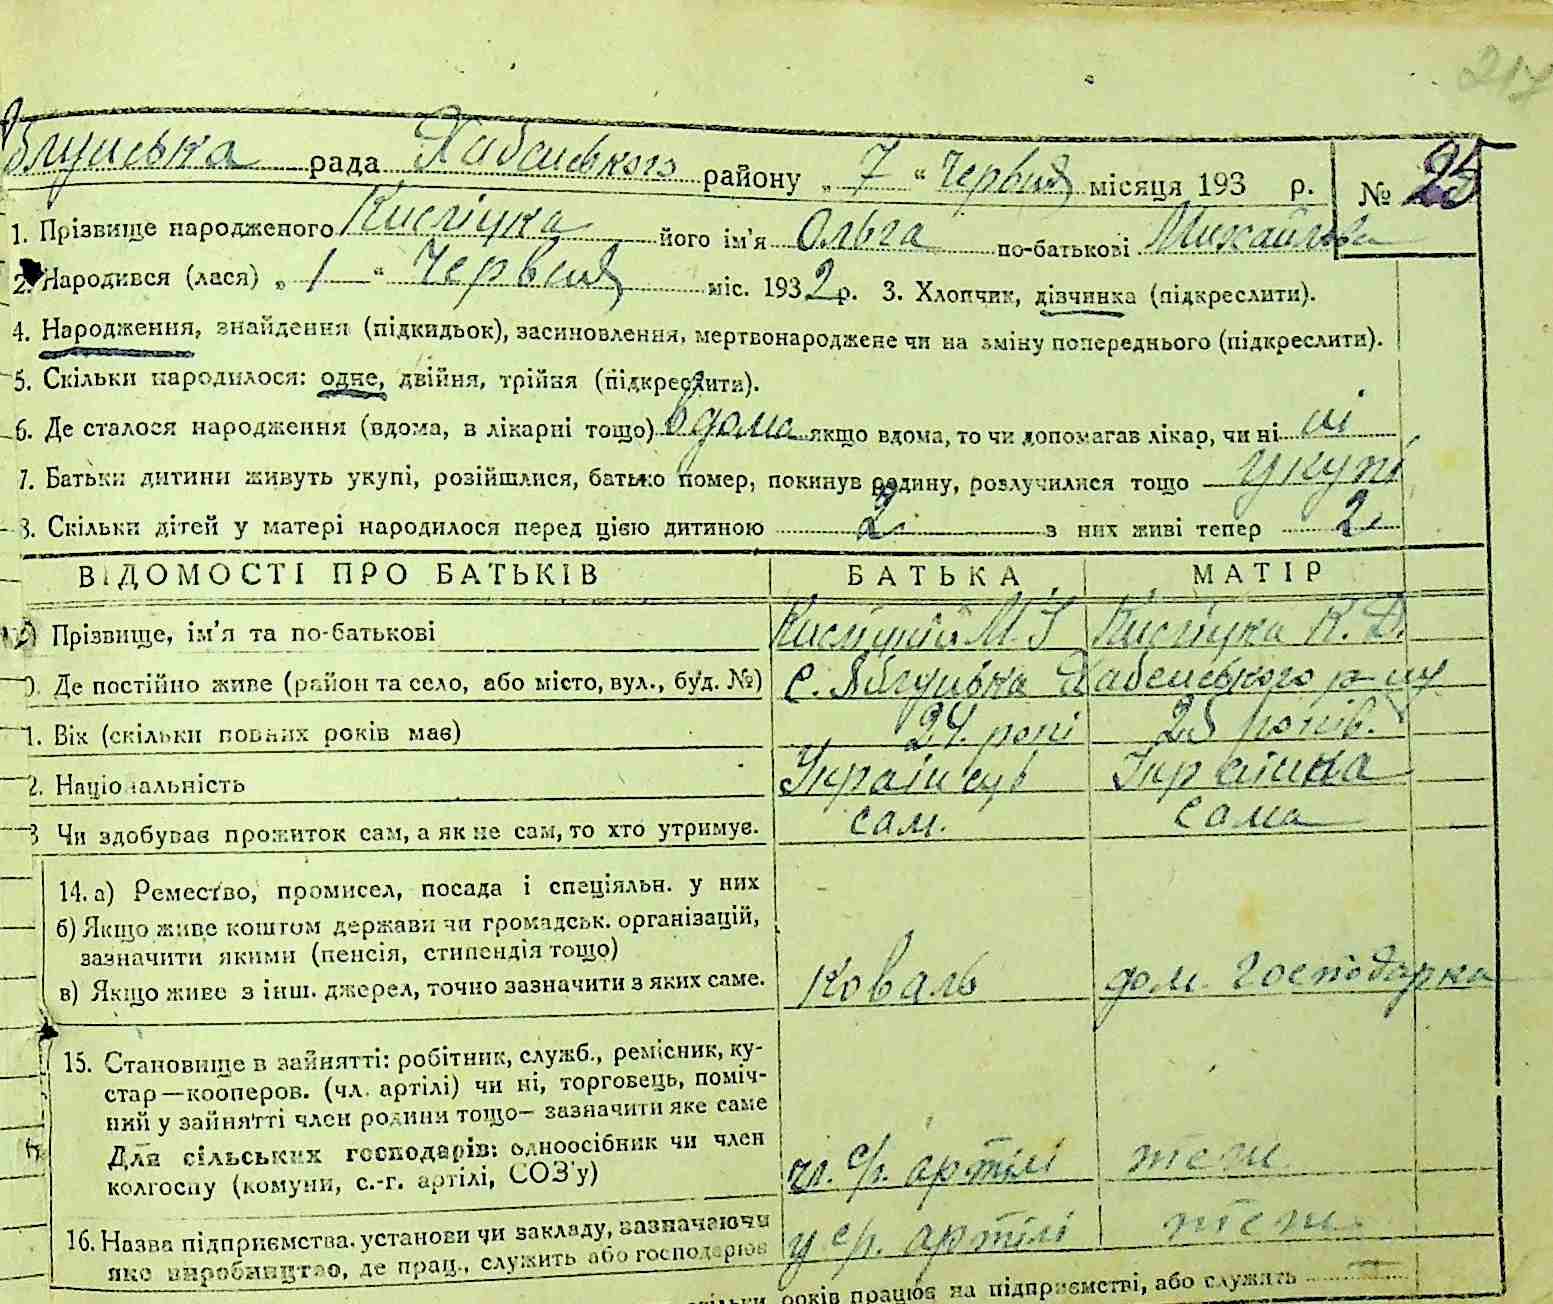 217
рада Хабенського району „ 7 “ Червня місяця 193 р. № 25
1. Прізвище народженого його ім’я Ольга по-батькові Михайлівна
2. Народився (лася) „ 1 “ Червня міс. 1932 р. 3. Хлопчик, дівчинка (підкреслити).
4. Народження, знайдення (підкидьок), засиновлення, мертвонароджене чи на зміну попереднього (підкреслити).
5. Скільки народилося: одне, двійня, трійня (підкреслити).
6. Де сталося народження (вдома, в лікарні тощо) вдома якщо вдома, то чи допомагав лікар, чи ні ні
7. Батьки дитини живуть укупі, розійшлися, батько помер, покинув родину, розлучилися тощо укупі
8. Скільки дітей у матері народилося перед цією дитиною 2 з них живі тепер 2
ВІДОМОСТІ ПРО БАТЬКІВ БАТЬКА МАТІР
Прізвище, ім’я та по-батькові М. І К. Д.
0. Де постійно живе (район та село, або місто, вул., буд. №) с. Хабенського р-ну
1. Вік (скільки повних років має) 24. рокі 25 років.
2. Національність Українець Українка
3 Чи здобуває прожиток сам, а як не сам, то хто утримує. сам. сама
14. а) Ремество, промисел, посада і спеціяльн. у них
б) Якщо живе коштом держави чи громадськ. організацій,
зазначити якими (пенсія, стипендія тощо)
в) Якщо живе з інш. джерел, точно зазначити з яких саме. Коваль дом. господарка
15. Становище в зайнятті: робітник, служб., ремісник, ку-
стар—кооперов. (чл. артілі) чи ні, торговець, поміч-
ний у зайнятті член родини тощо— зазначити яке саме
Для сільських господарів: одноосібник чи член
колгоспу (комуни, с.-г. артілі, СОЗ’у) чл. с/г. артілі теж
16. Назва підприємства, установи чи закладу, зазначаючи
яке виробництво, де прац., служить або господарює у с/г. артілі теж
скільки років працює на підприємстві, або служить —